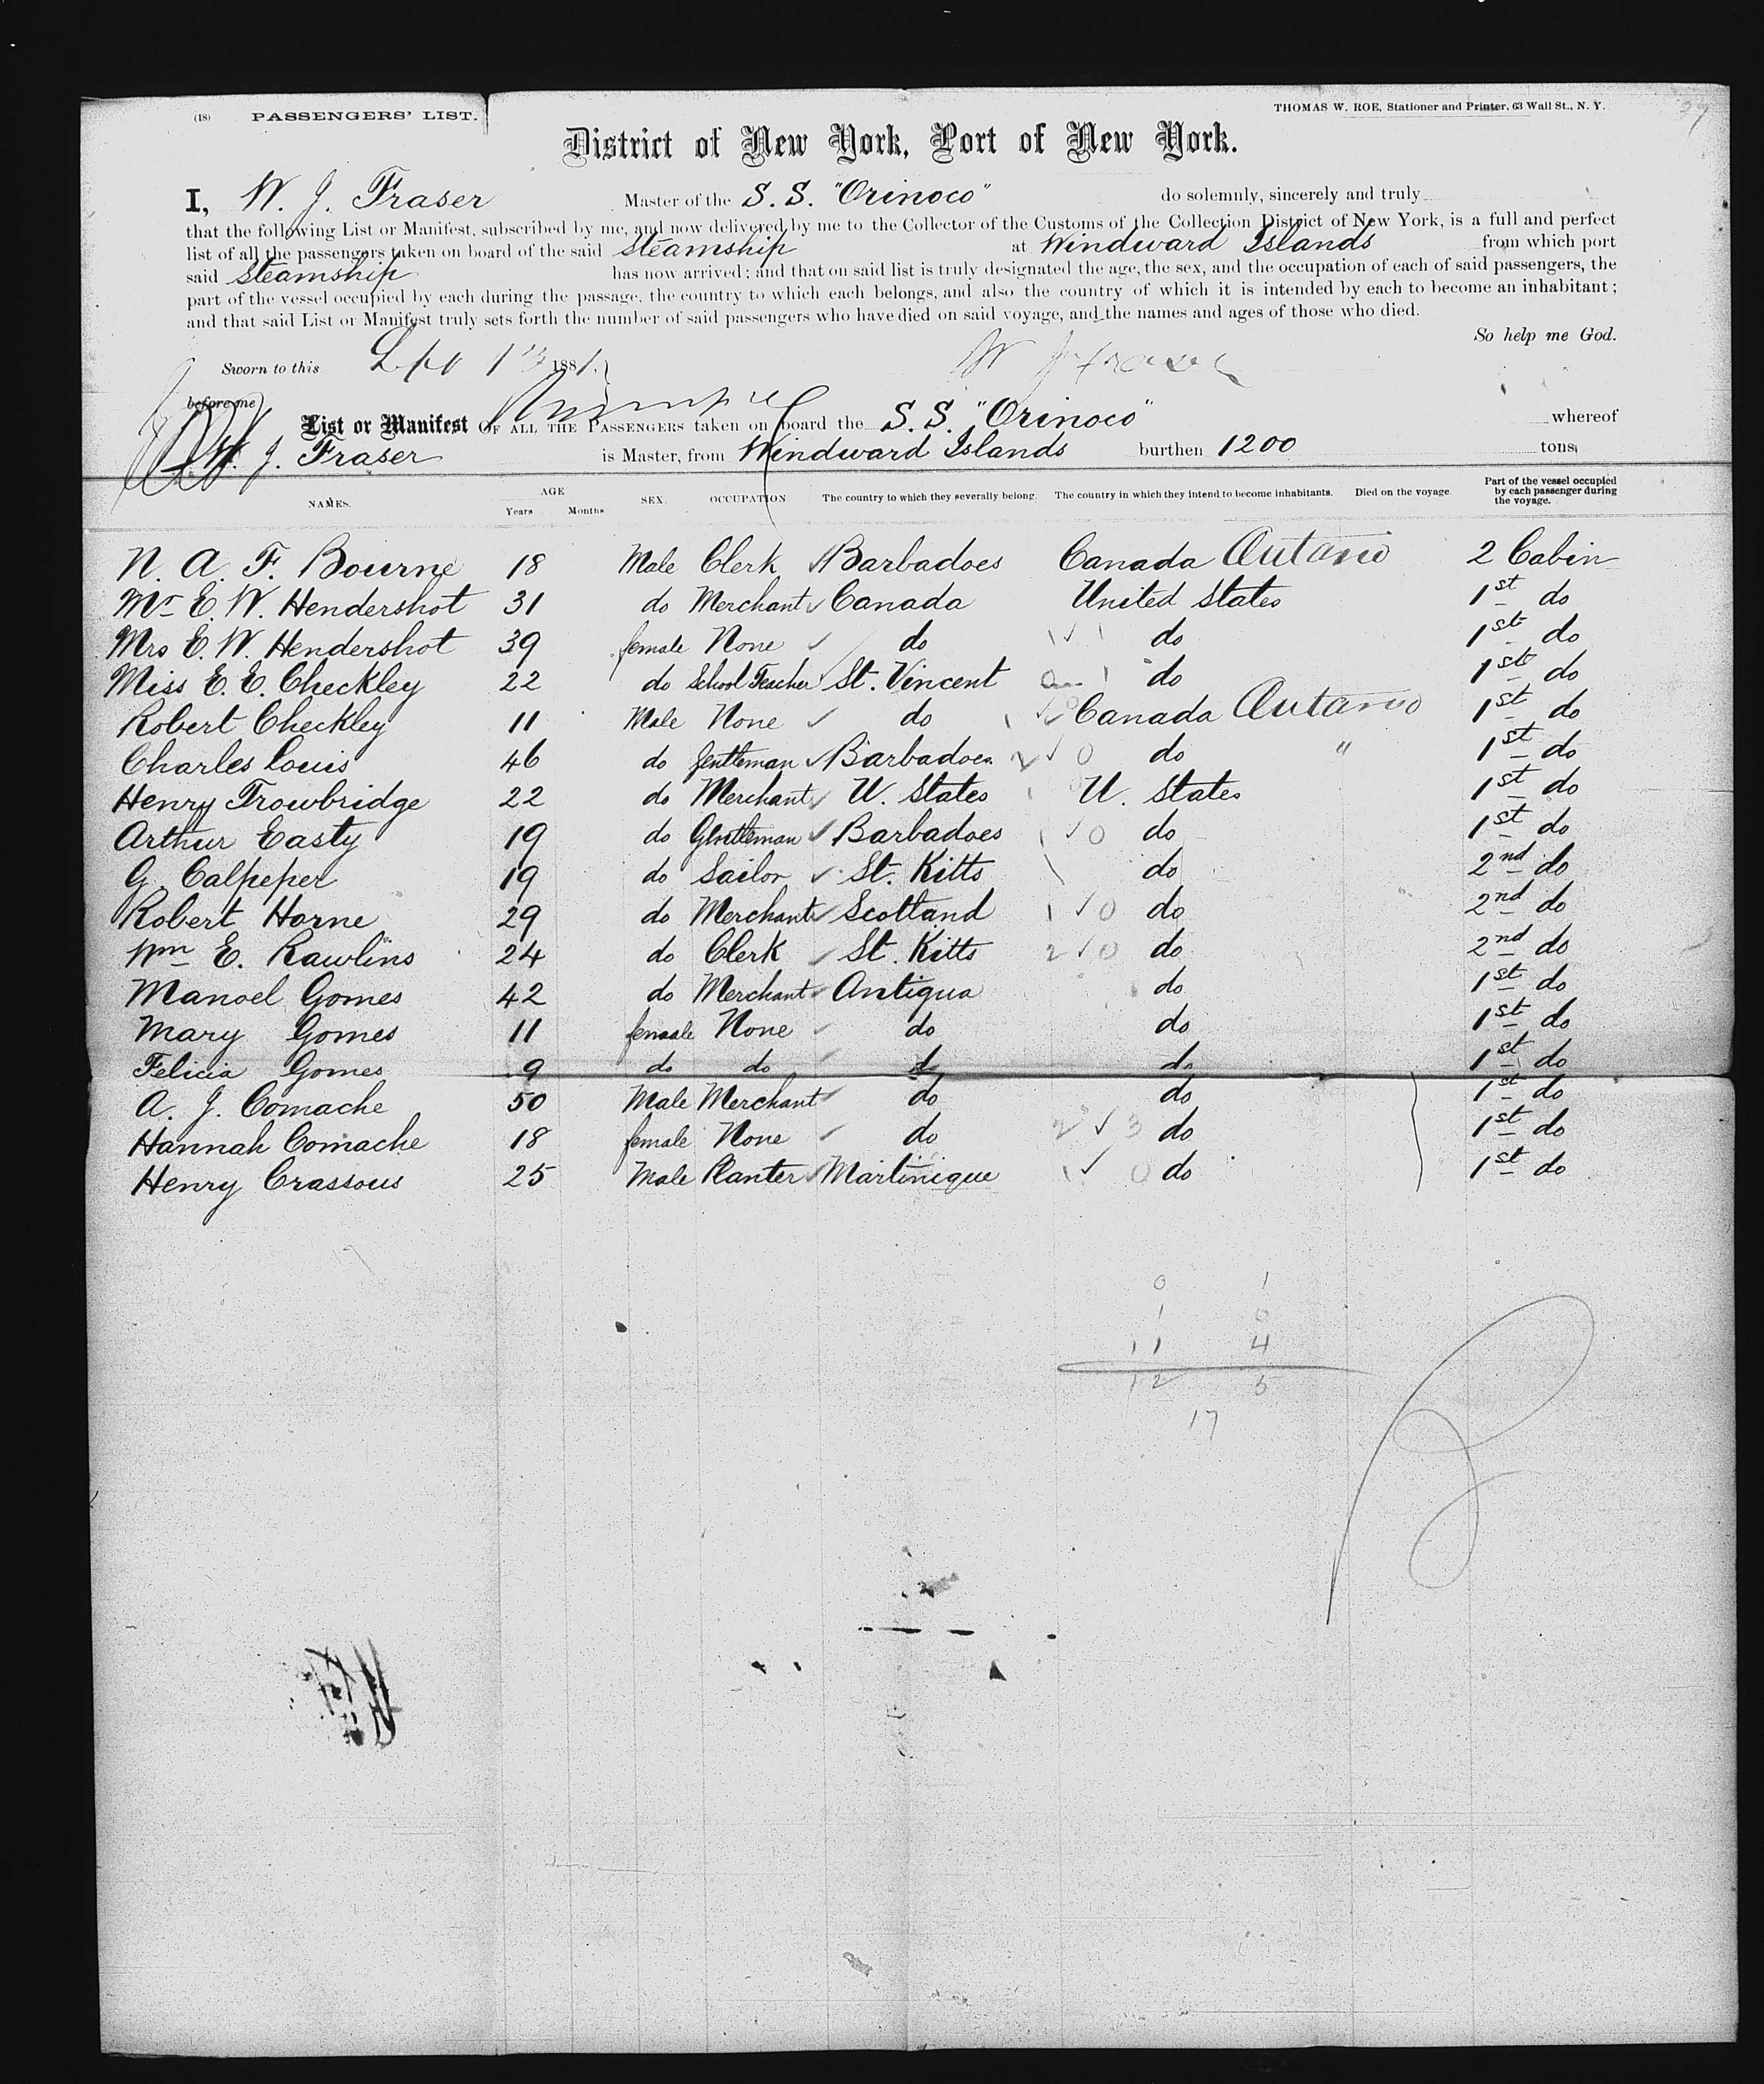 (18) PASSENGERS' LIST. THOMAS W. ROE, Stationer and Printer, 63 Wall St., N. Y.
District of New York, Port of New York.
I, W. J. Fraser Master of the S. S. "Orinoco" do solemnly, sincerely and truly
that the following List or Manifest, subscribed by me, and now delivered by me to the Collector of the Customs of the Collection District of New York, is a full and perfect
list of all the passengers taken on board of the said Steamship at Windward Islands from which port
said Steamship has now arrived; and that on said list is truly designated the age, the sex, and the occupation of each of said passengers, the
part of the vessel occupied by each during the passage, the country to which each belongs, and also the country of which it is intended by each to become an inhabitant;
and that said List or Manifest truly sets forth the number of said passengers who have died on said voyage, and the names and ages of those who died.
So help me God.
Sworn to this 1881. W J Fraser
before me
List or Manifest OF ALL THE PASSENGERS taken on board the S. S. "Orinoco" whereof
W. J. Fraser is Master, from Windward Islands burthen 1200 tons,
NAMES. AGE Years Months SEX. OCCUPATION The country to which they severally belong. The country in which they intend to become inhabitants. Died on the voyage. Part of the vessel occupied by each passenger during the voyage.
N. A. F. Bourne 18 Male Clerk Barbadoes Canada Ontario 2 Cabin
Mr E. W. Hendershot 31 do Merchant Canada United States 1st do
Mrs E. W. Hendershot 39 female None do do 1st do
Miss E. E. Checkley 22 do School Teacher St. Vincent do 1st do
Robert Checkley 11 Male None do Canada Ontario 1st do
Charles Louis 46 do Gentleman Barbadoes do " 1st do
Henry Trowbridge 22 do Merchant U. States U. States 1st do
Arthur Easty 19 do Gentleman Barbadoes do 1st do
G. Calpeper 19 do Sailor St. Kitts do 2nd do
Robert Horne 29 do Merchant Scotland do 2nd do
Wm E. Rawlins 24 do Clerk St. Kitts do 2nd do
Manoel Gomes 42 do Merchant Antigua do 1st do
Mary Gomes 11 female None do do 1st do
Felicia Gomes 9 do do do do 1st do
A. J. Comache 50 Male Merchant do do 1st do
Hannah Comache 18 female None do do 1st do
Henry Crassous 25 Male Planter Martinique do 1st do
0 1
1 0
11 4
12 5
17